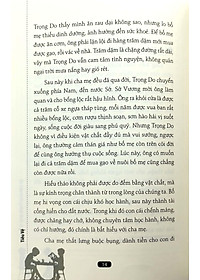 Trọng Do thấy mình ăn rau dại không sao, nhưng lo bố
mẹ thiếu dinh dưỡng, ảnh hưởng đến sức khoẻ. Để bố mẹ
được ăn cơm, ông phải lặn lội đi hàng trăm dặm mới mua
được gạo, rồi vác về nhà. Trăm dặm là chặng đường rất dài,
vậy mà Trọng Do vẫn cam tâm tình nguyện, không quản
ngại trời mưa nắng hay gió rét.
Sau này khi cha mẹ đều đã qua đời, Trọng Do chuyển
xuống phía Nam, đến nước Sở. Sở Vương mời ông làm
quan và cho bổng lộc rất hậu hĩnh. Ông ra khỏi cửa là được
cả trăm cỗ xe ngựa tháp tùng, mỗi năm được vua ban rất
nhiều bổng lộc, cơm rượu thịnh soạn, sơn hào hải vị ngày
ngày, sống cuộc đời giàu sang phú quý. Nhưng Trọng Do
không vì điều kiện vật chất đầy đủ mà vui sướng, ngược
lại, ông thường cảm thán giá như bố mẹ trên cõi đời này
để cùng ông hưởng thụ cuộc sống. Lúc này, ông có muốn
đi cả trăm dặm để mua gạo về nuôi bố mẹ cũng không
được nữa rồi.
Hiếu thảo không phải được đo đếm bằng vật chất, mà
là sự kính trọng chân thành từ trong lòng của chúng ta. Bố
mẹ hi vọng con cái chịu khó học hành, sau này thành tài
cống hiến cho đất nước. Trong khi đó con cái chẳng mảy
may được chăng hay chớ, không chuyên tâm học hành, không
có chí hướng, đó chính là bất hiếu với cha mẹ.
Cha mẹ thắt lưng buộc bụng, dành tiền cho con đi
Tiểu Vệ
14